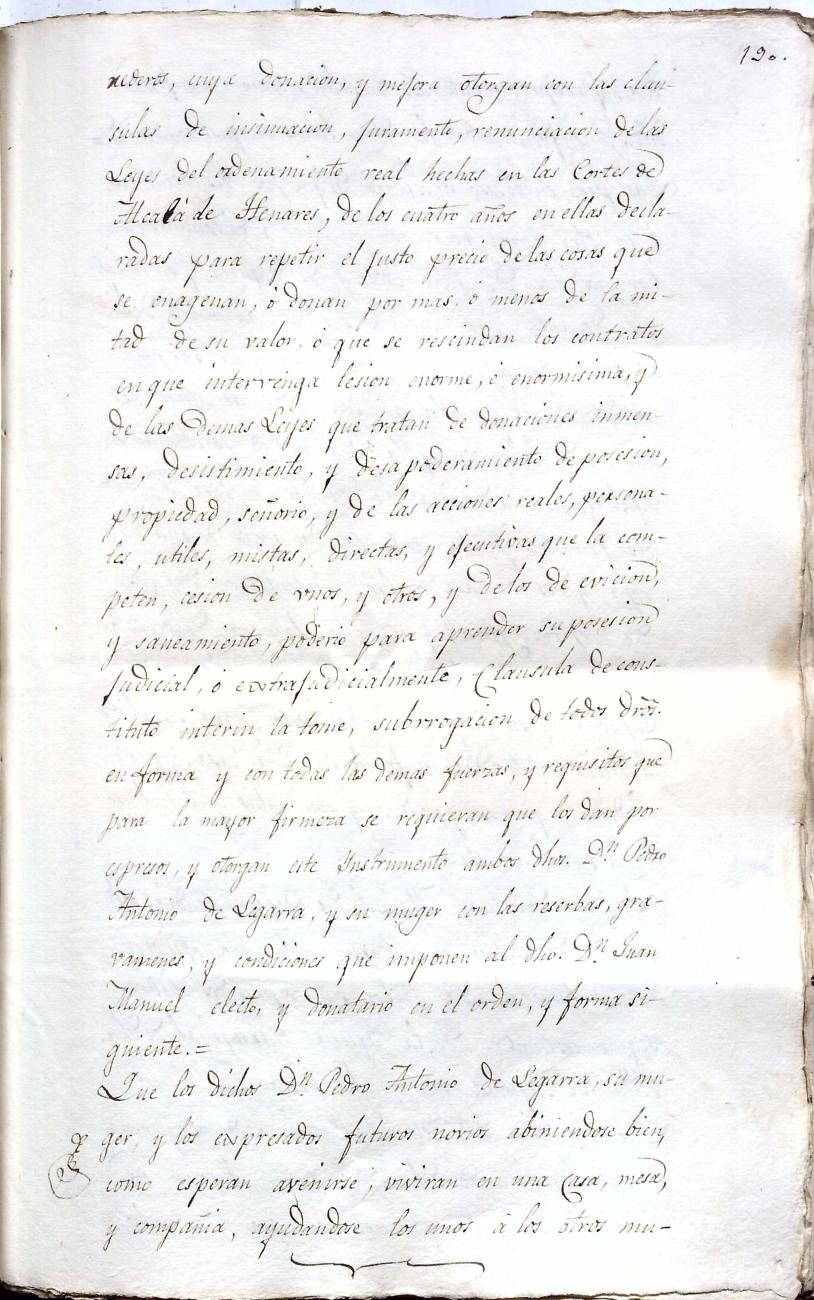 190.
rederos, cuya donacion, y mejora otorgan con las clau-
sulas de insinuacion, juramento, renunciacion de las
Leyes del ordenamiento real hechas en las Cortes de
Alcalá de Henares, de los cuatro años en ellas decla-
radas para repetir el justo precio de las cosas que
se enagenan, ó donan por mas, ó menos de la mi-
tad de su valor, ó que se rescindan los contratos
en que intervenga lesion enorme, ó enormisima, y
de las demas Leyes que tratan de donaciones inmen-
sas, desistimiento, y desapoderamiento de posesion,
propiedad, señorio, y de las acciones reales, persona-
les, utiles, mistas, directas, y ejecutivas que la com-
peten, cesion de unos, y otros, y de los de evicion,
y saneamiento, poderio para aprender su posesion
judicial, ó extrajudicialmente, Clausula de cons-
tituto interin la tome, subrrogacion de todos dros.
en forma y con todas las demas fuerzas, y requisitos que
para la mayor firmeza se requieran que los dan por
espresos, y otorgan este Ynstrumento ambos dhos. Dn. Pedro
Antonio de Legarra, y su muger con las reserbas, gra-
vamenes, y condiciones que imponen al dho. Dn. Juan
Manuel electo, y donatario en el orden, y forma si-
guiente.=
Que los dichos Dn. Pedro Antonio de Legarra, su mu-
ger, y los expresados futuros novios abiniendose bien,
como esperan avenirse, viviran en una Casa, mesa,
y compañia, ayudandose los unos á los otros mu-